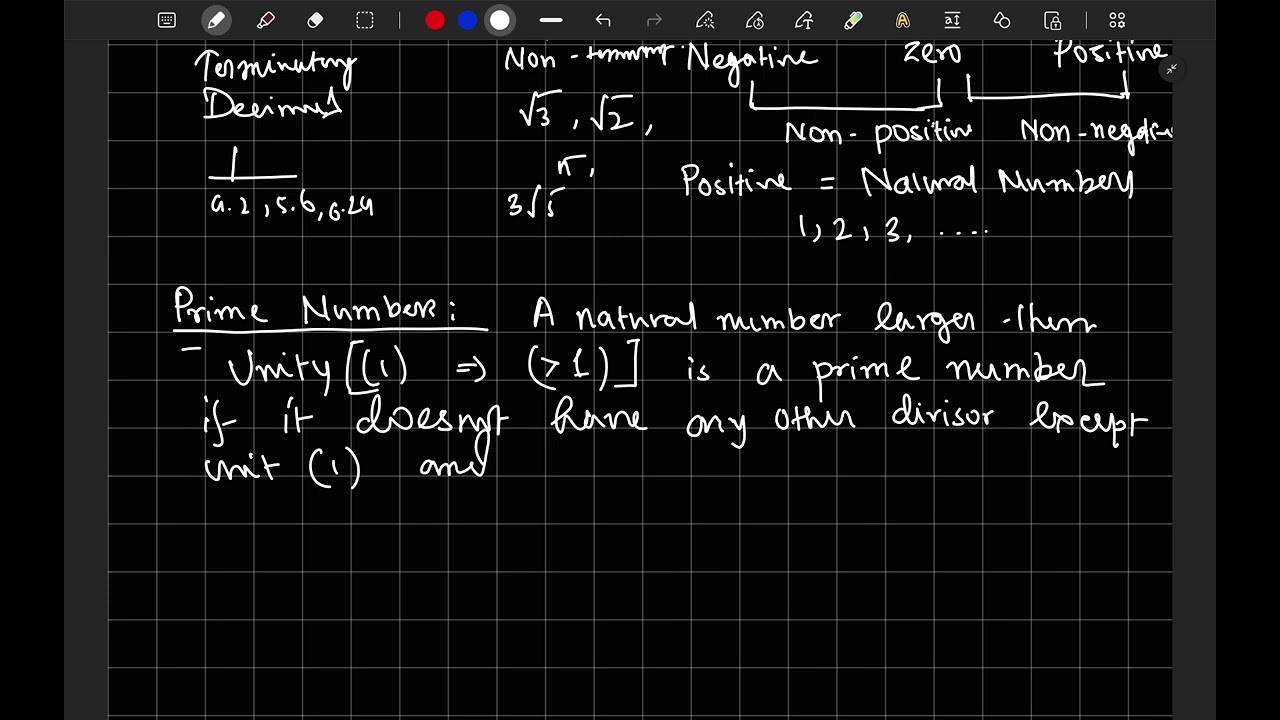 Terminating Non - terming. Negative Zero Positive
Decimals
√3 , √2 , Non - positive Non - negative
π, Positive = Natural Numbers
9.2 , 5.6 , 0.29 3√5
1, 2, 3, ....
Prime Numbers : A natural number larger than
- Unity [(1) => (>1)] is a prime number
if it doesnpt have any other divisor except
unit (1) and